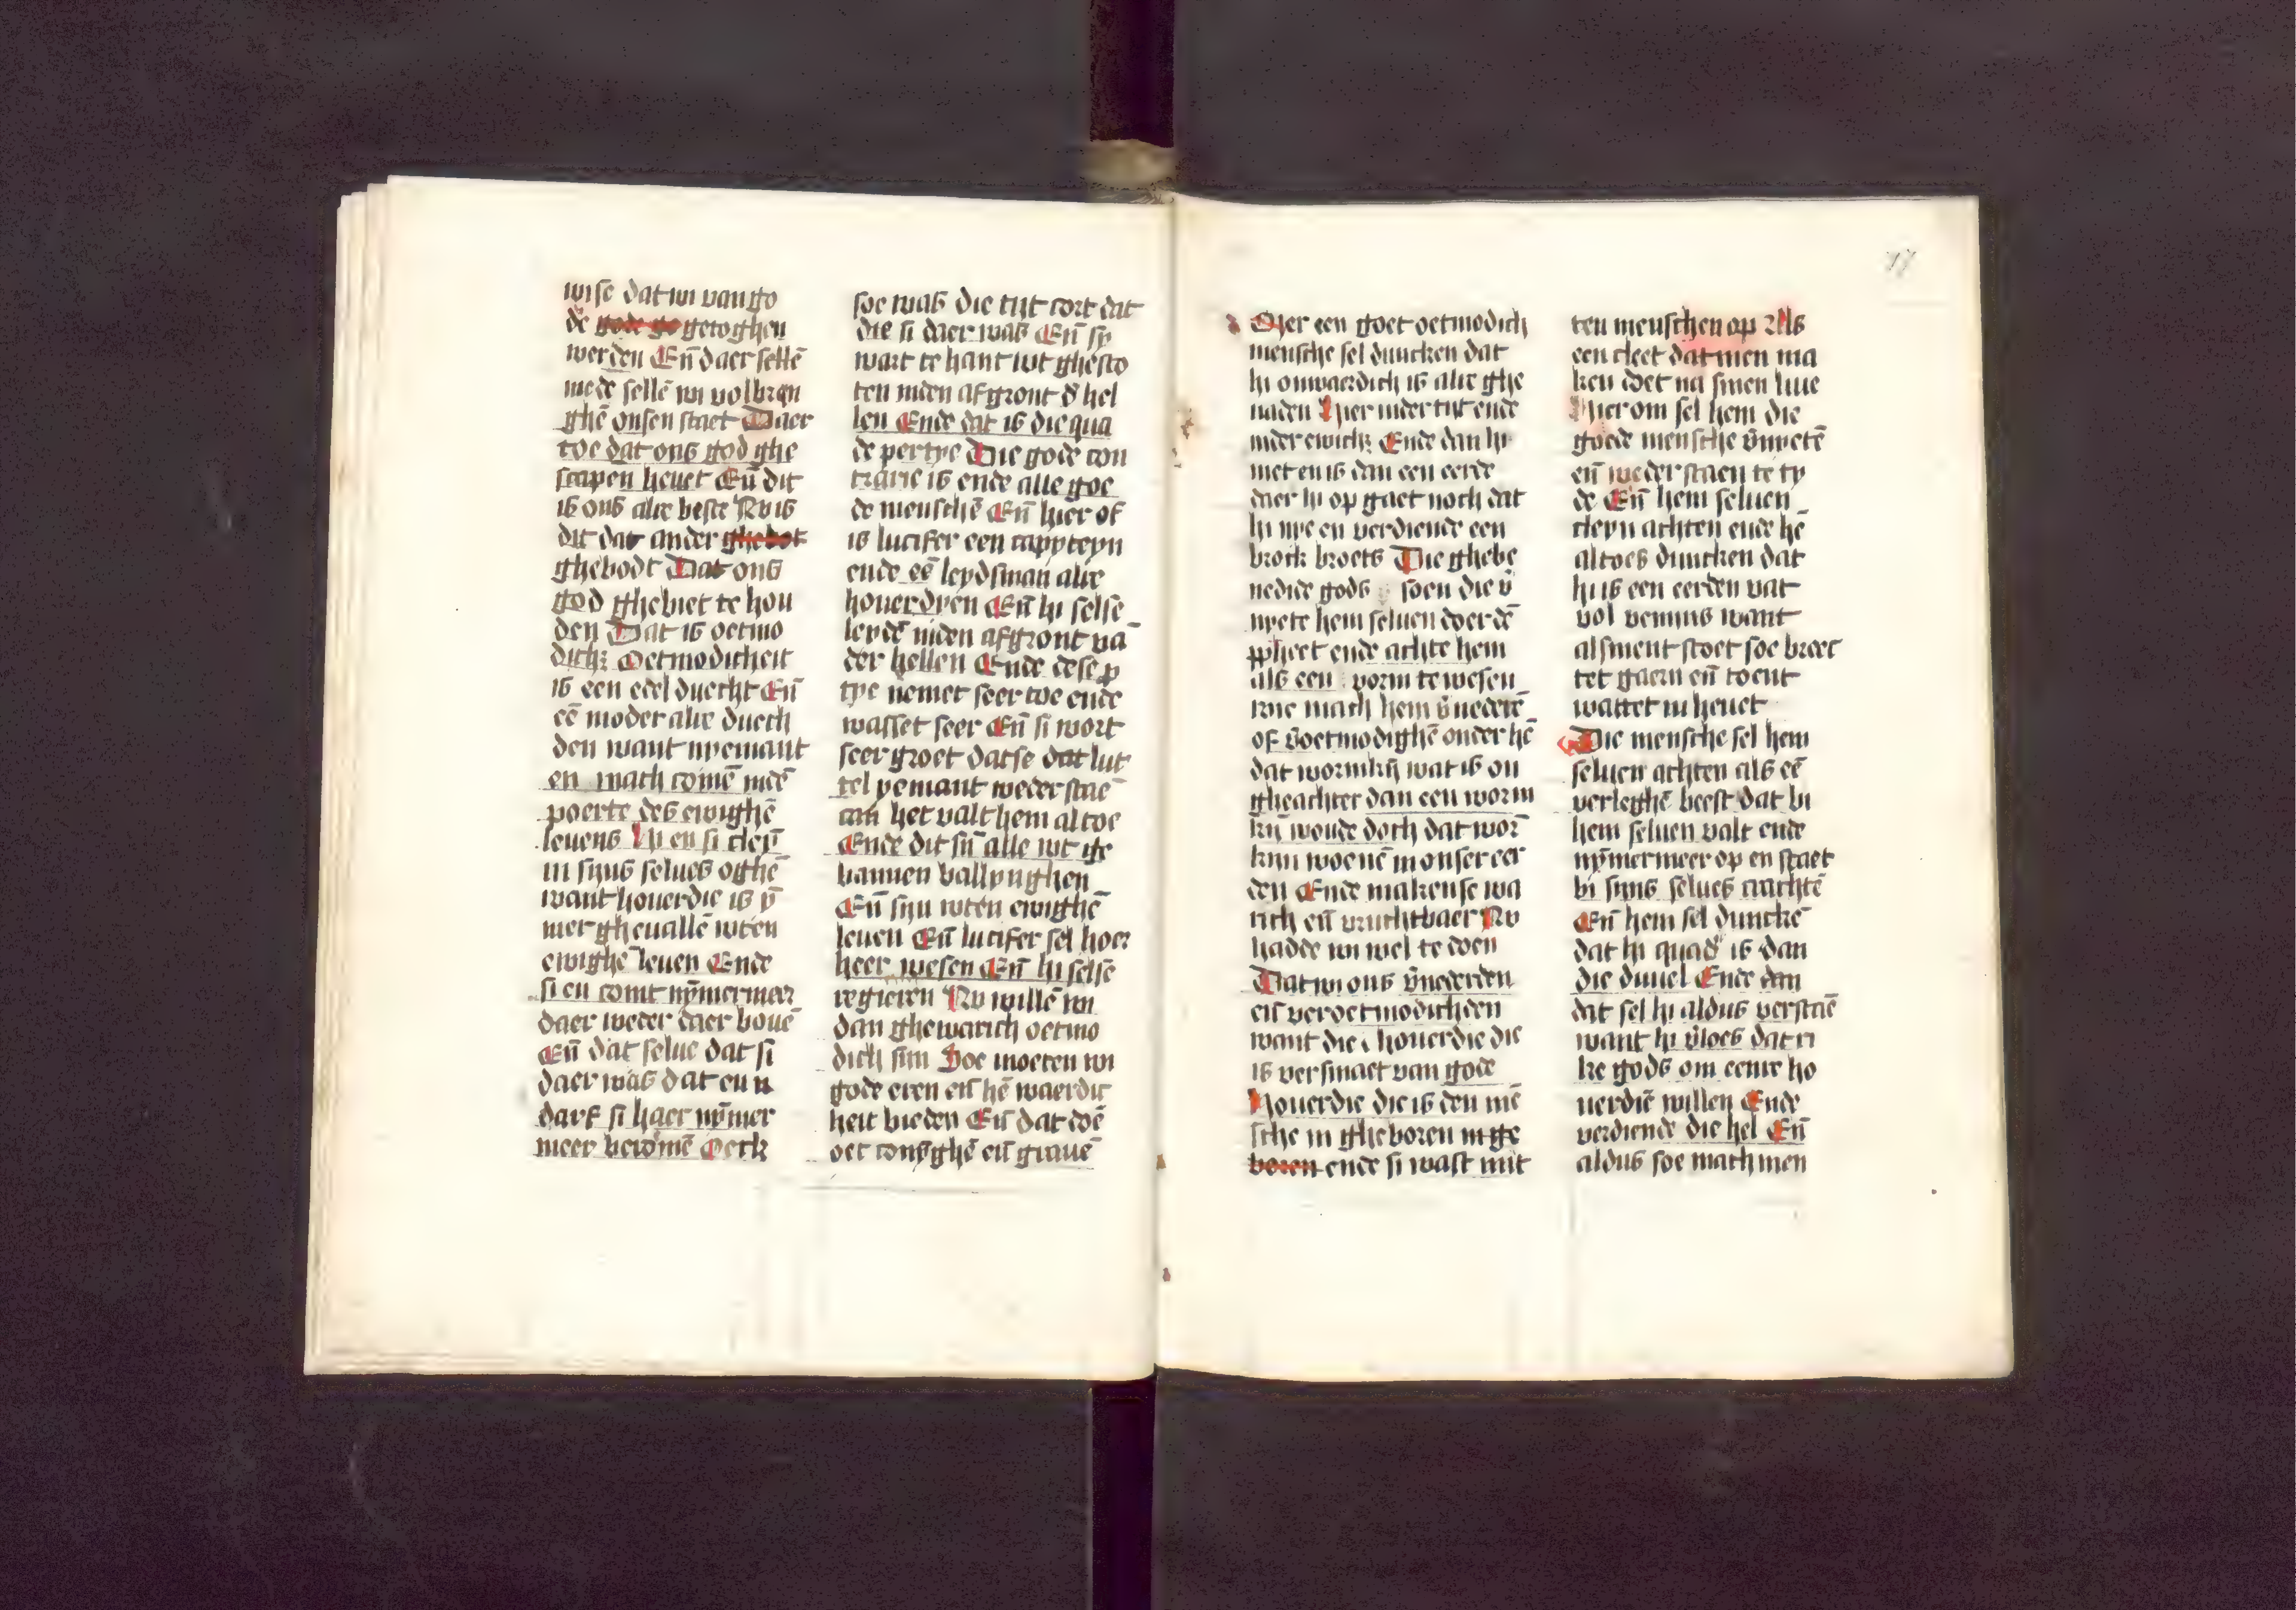 wise dat wi van go
de gode ge getoghen
werden Eñ daer sellē
mede sellē wi volbren
ghē onsen staet Daer
toe dat ons god ghe
scapen heuet Eñ dit
is ons alre beste Nv is
dit dat ander ghebot
ghebodt Dat ons
god ghebiet te hou
den Dat is oetmo
dich; Oetmodicheit
is een edel duecht Eñ
eē moder alre duech
den want nyemant
en mach comē inde
poerte des ewighē
leuens Hi en si cleyn
in syns selues oghē
want houerdie is ȳ
mer gheuallē wten
ewighē leuen Ende
si en comt nȳmermeer
daer weder daer bouē
Eñ dat selue dat si
daer was dat en n
darf si haer nȳmer
meer beromē Oeck
soe was die tijt cort dat
die si daer was Eñ sy
wart te hant wt ghesto
ten inden afgront d' hel
len Ende dat is die qua
de pertye Die gode con
trarie is ende alle goe
de menschē Eñ hier of
is lucifer een cappyteyn
ende eē leydsman alre
houerdyen Eñ hi selse
leydē inden afgront vā
der hellen Ende dese p
tye nemet seer toe ende
wasset seer Eñ si wort
seer groet datse dat lut
tel yemant weder staē
can het valt hem al toe
Ende dit sij̄n alle wt ge
bannen ballynghen
Eñ sijn wten ewighē
leuen Eñ lucifer sel hoer
heer wesen Eñ hi selse
regieren Nv willē wi
dan ghewarich oetmo
dich sijn Soe moeten wi
gode eren eñ hē waerdic
heit bieden Eñ dat doē
oec conȳghē eñ grauē
17
Mer een goet oetmodich
mensche sel duncken dat
hi onwaerdich is alre ghe
naden Hier inder tijt ende
inder ewich; Ende dan hi
niet en is dan een eerde
daer hi op gaet noch dat
hi nye en verdiende een
brock broets Die ghebe
nedide gods soen die v̄
nyete hem seluen doer dē
ppheet ende achte hem
als een worm te wesen
wie mach hem v̄nederē
of v̄oetmodighē onder hē
dat wormkij̄ wat is on
gheachter dan een worm
kij̄ woude doch dat worm
kijn woenē in onser eer
den Ende makense wa
rich eñ vruchtbaer Nv
hadde wi wel te doen
Dat wi ons v̄nederden
eñ veroetmodichden
want die houerdie die
is versmaet van gode
Houerdie die is den mē
sche in gheboren in ge
boren ende si wast mit
ten menschen op Als
een cleet datmen ma
ken doet na sinen liue
Hier om sel hem die
goede mensche v̄nyetē
eñ weder staen te ty
de Eñ hem seluen
cleyn achten ende hē
altoes duncken dat
hi is een eerden vat
vol venijns want
alsment stoet soe breec
tet gaern eñ toent
wattet in heuet
Die mensche sel hem
seluen achten als eē
verleghē beest dat bi
hem seluen valt ende
nȳmermeer op en staet
bi sijns selues crachtē
Eñ hem sel dunckē
dat hi quad' is dan
die duuel Ende dan
dat sel hi aldus verstaē
want hi v̄loes dat ri
ke gods om eenre ho
uerdiē willen Ende
verdiende die hel Eñ
aldus soe mach men